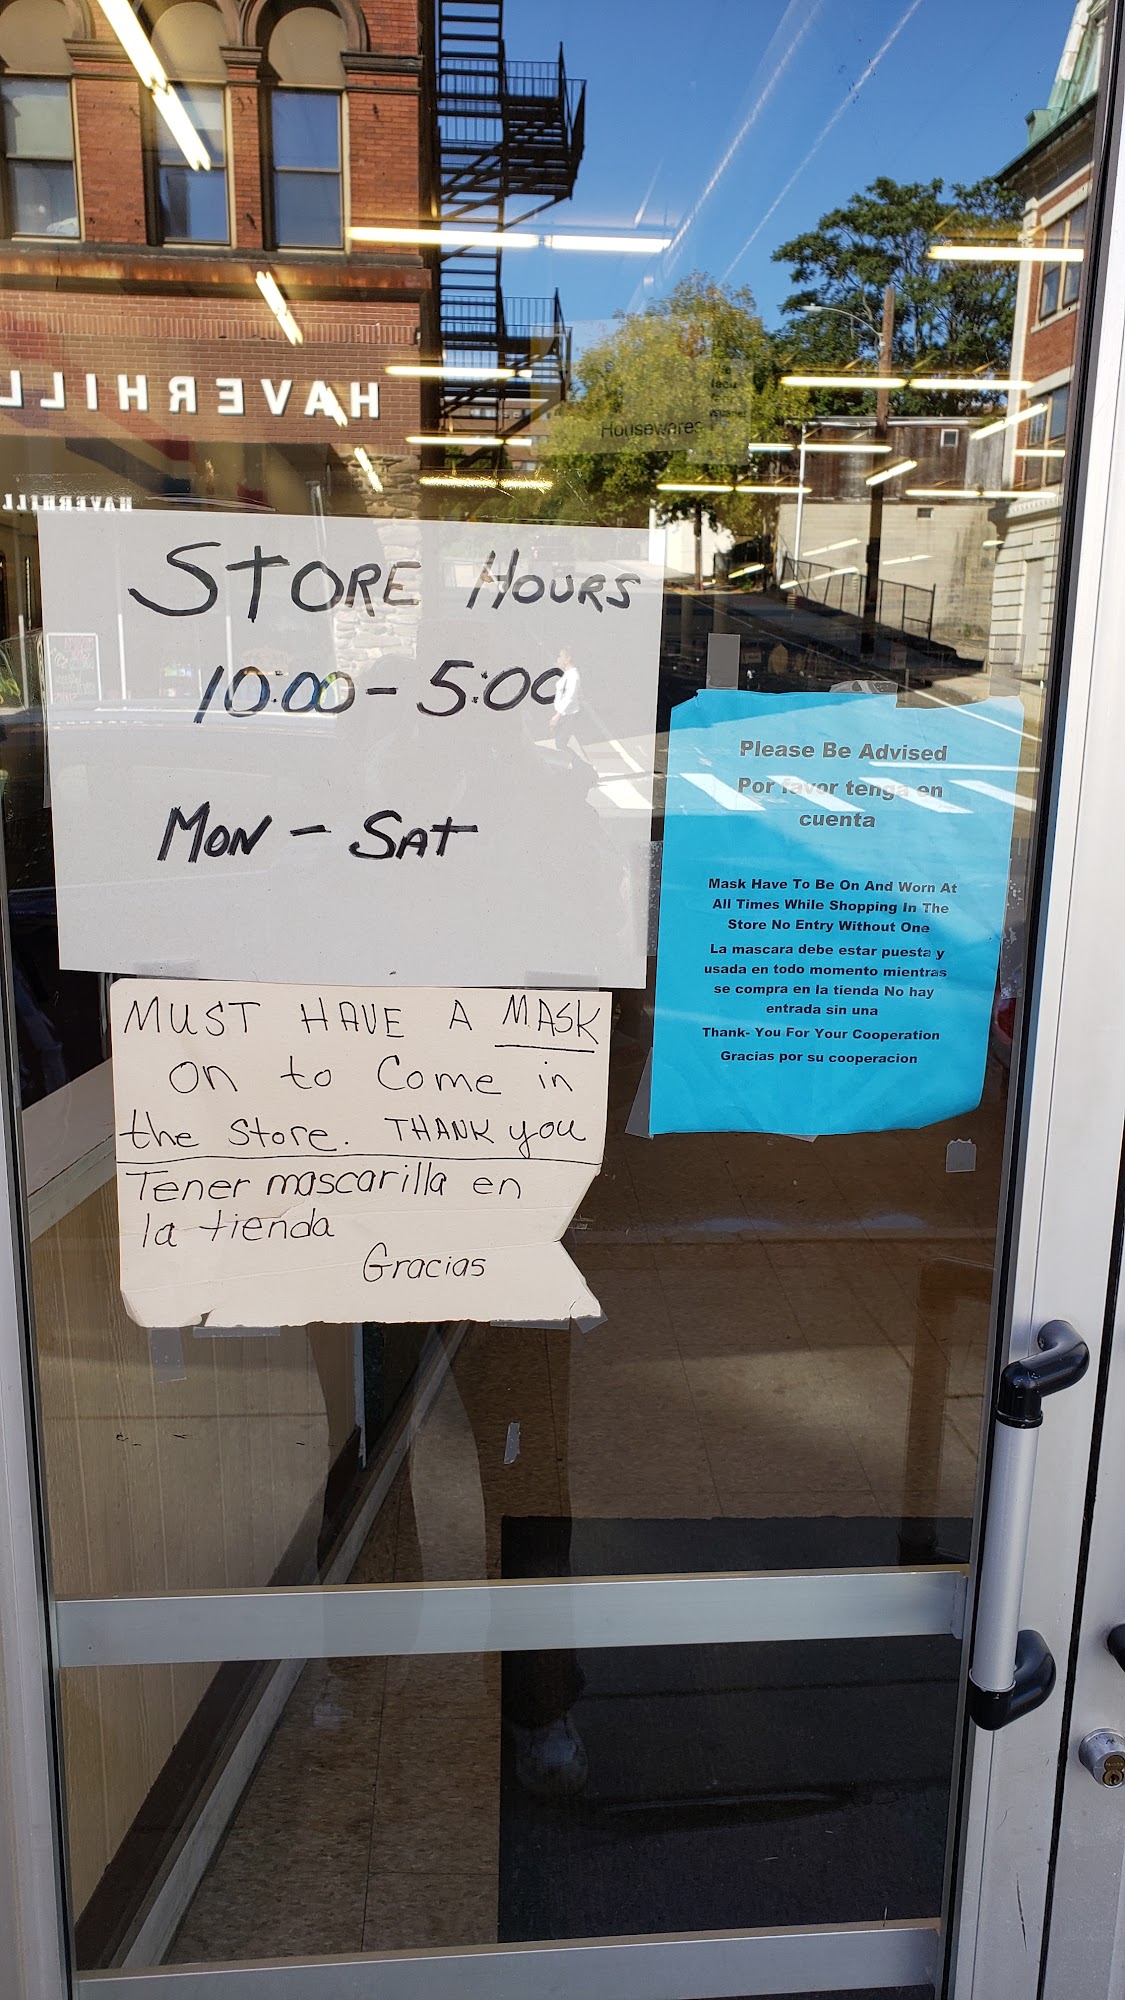 HAVERHILL
HAVERHILL
Housewares
STORE HOURS
10:00 - 5:00
MON - SAT
MUST HAVE A MASK
on to Come in
the Store. THANK you
Tener mascarilla en
la tienda
Gracias
Please Be Advised
Por favor tenga en
cuenta
Mask Have To Be On And Worn At
All Times While Shopping In The
Store No Entry Without One
La mascara debe estar puesta y
usada en todo momento mientras
se compra en la tienda No hay
entrada sin una
Thank- You For Your Cooperation
Gracias por su cooperacion